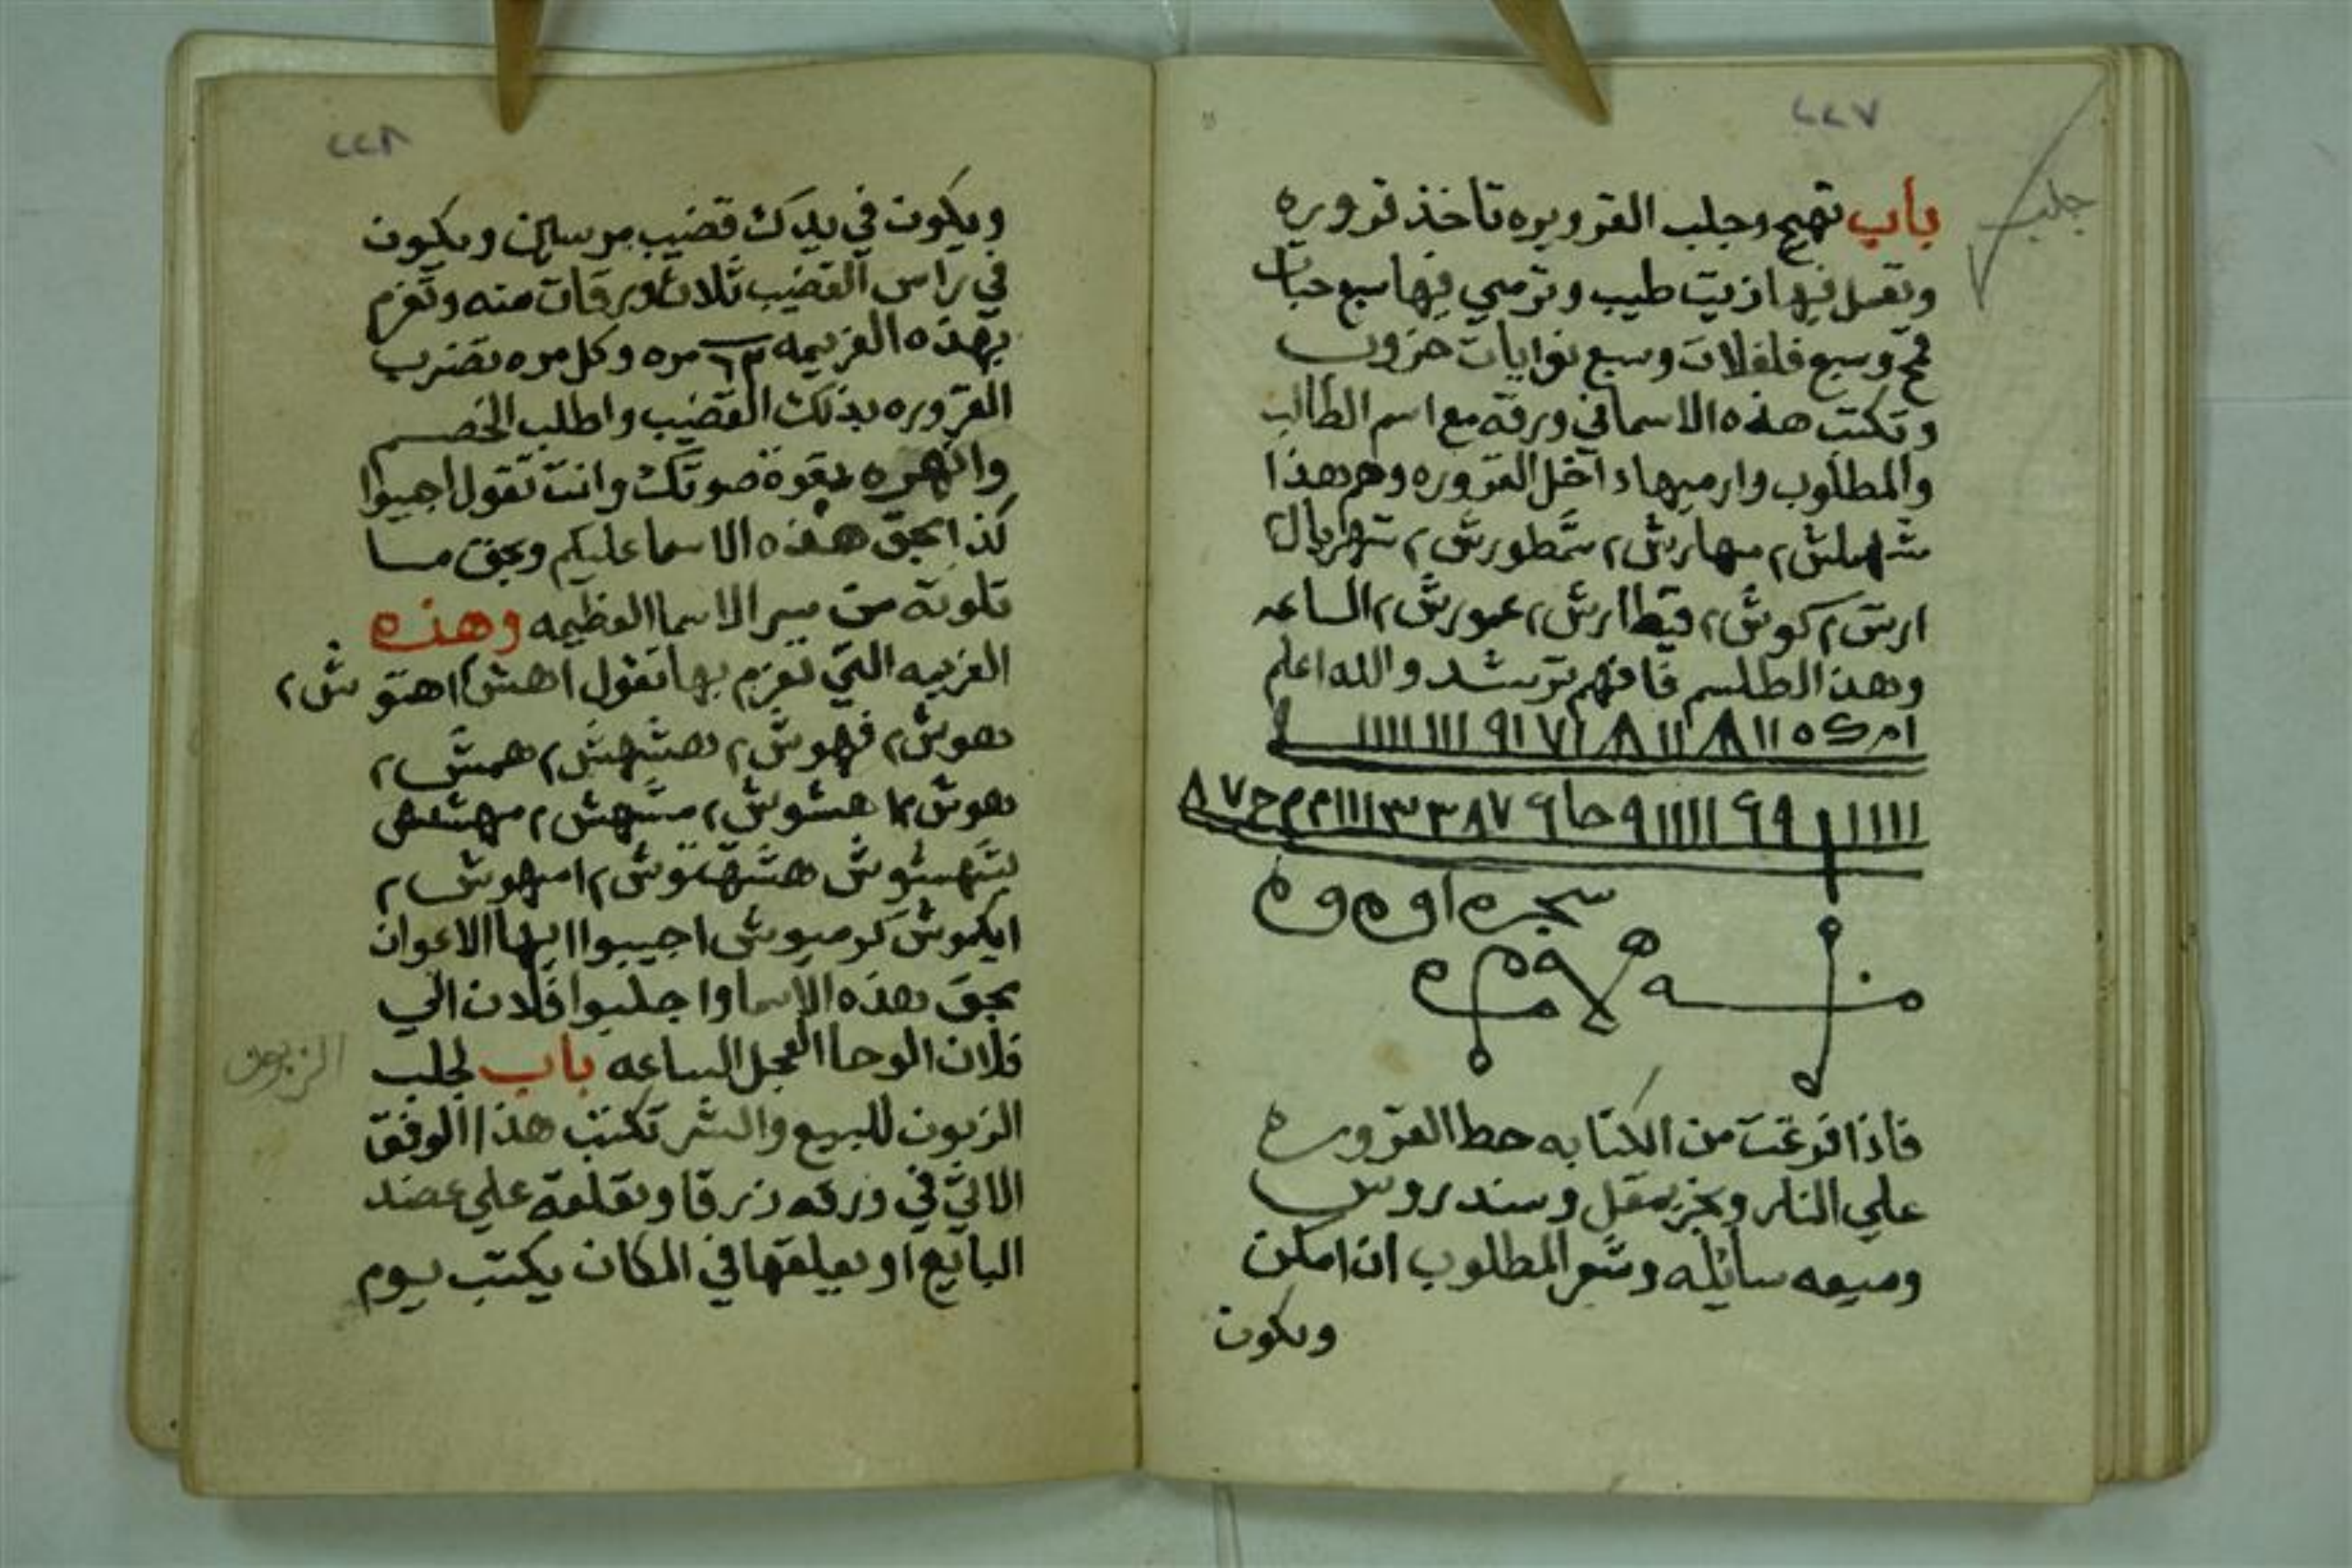 ٢٢٧
جلب
باب تهيج وجلب القروره تاخذ قروره
وتعمل فيها زيت طيب وترمي فيها سبع حبات
قمح وسبع فلفلات وسبع نوايات خروب
وتكتب هذه الاسما في ورقه مع اسم الطالب
والمطلوب وارميها داخل القروره وهم هذا
شهلش ٢ مهارش ٢ شمطورش ٢ شهريال ٢
ارش ٢ كوش ٢ قيطارش ٢ عمورش ٢ الساعه
وهذ الطلسم فافهم ترشد والله اعلم
فاذا فرغت من الكتابه حط القروره
علي النار وبخر بمقل وسندروس
وميعه سايله وشعر المطلوب ان امكن
ويكون
٢٢٨
ويكون في يدك قضيب مرسين ويكون
في راس القضيب ثلاث ورقات منه وتعزم
بهذه العزيمه مره وكل مره تضرب
القروره بذلك القضيب واطلب الخصم
وانهره بقوة صوتك وانت تقول اجيبوا
كذا بحق هذه الاسما عليكم وبحق ما
تلوته من سر الاسما العظيمه وهذه
العزيمه التي تعزم بها تقول اهش ٢ اهتوش ٢
هوش ٢ فهوش ٢ هشهش ٢ همش ٢
هوش ٢ هشوش ٢ مشهش ٢
امهوش ٢
اجيبوا ايها الاعوان
بحق هذه الاسما واجلبوا فلان الي
فلان الوحا العجل الساعه باب لجلب
الزبون للبيع والشر تكتب هذا الوفق
الاتي في ورقه زرقا وتعلقه علي عضد
البايع او يعلقها في المكان يكتب يوم
الزبون